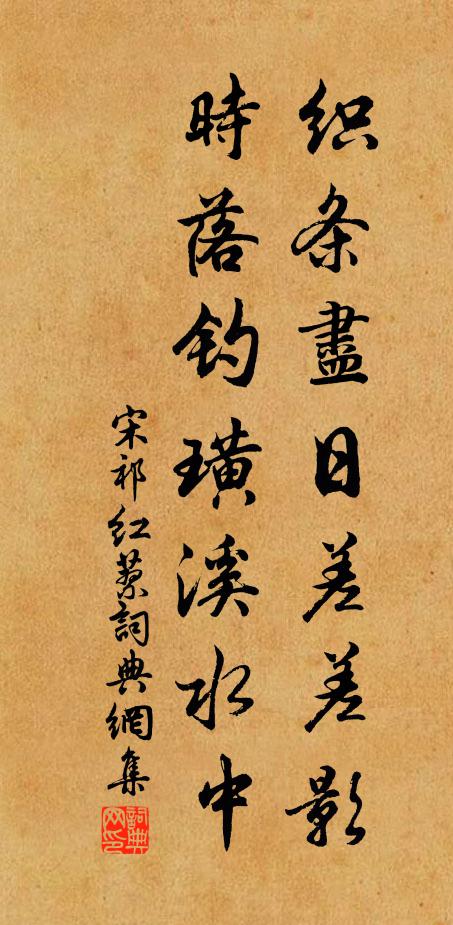 织条盡日差差影
時落钓璜溪水中
宋祁红蓼詞典網集
詞典网印